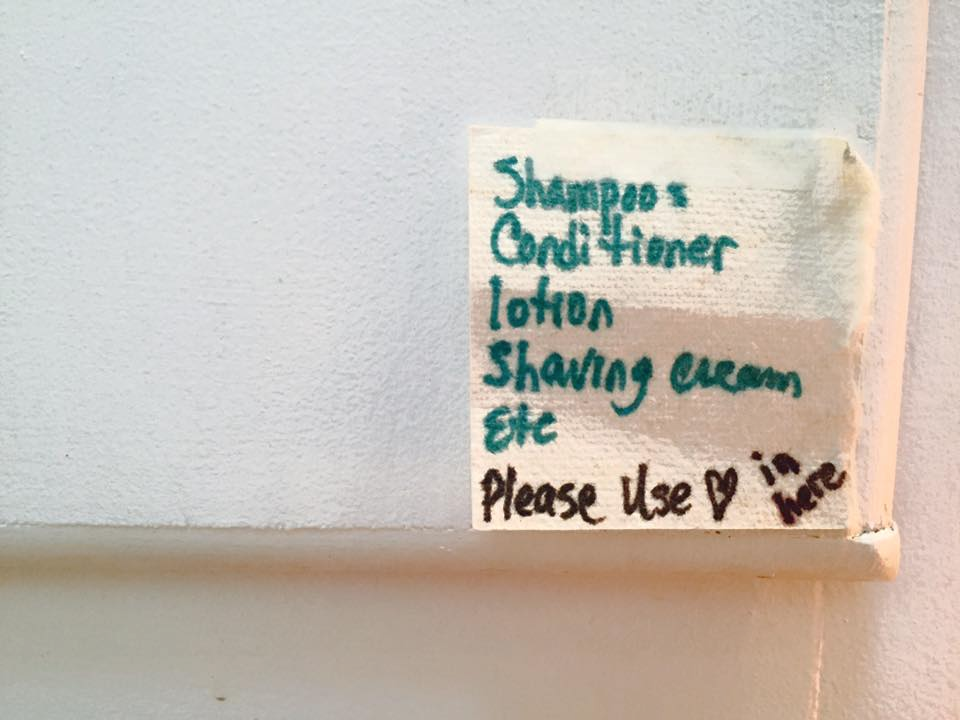 Shampoo &
Conditioner
lotion
Shaving cream
Etc
Please Use ♡ in here